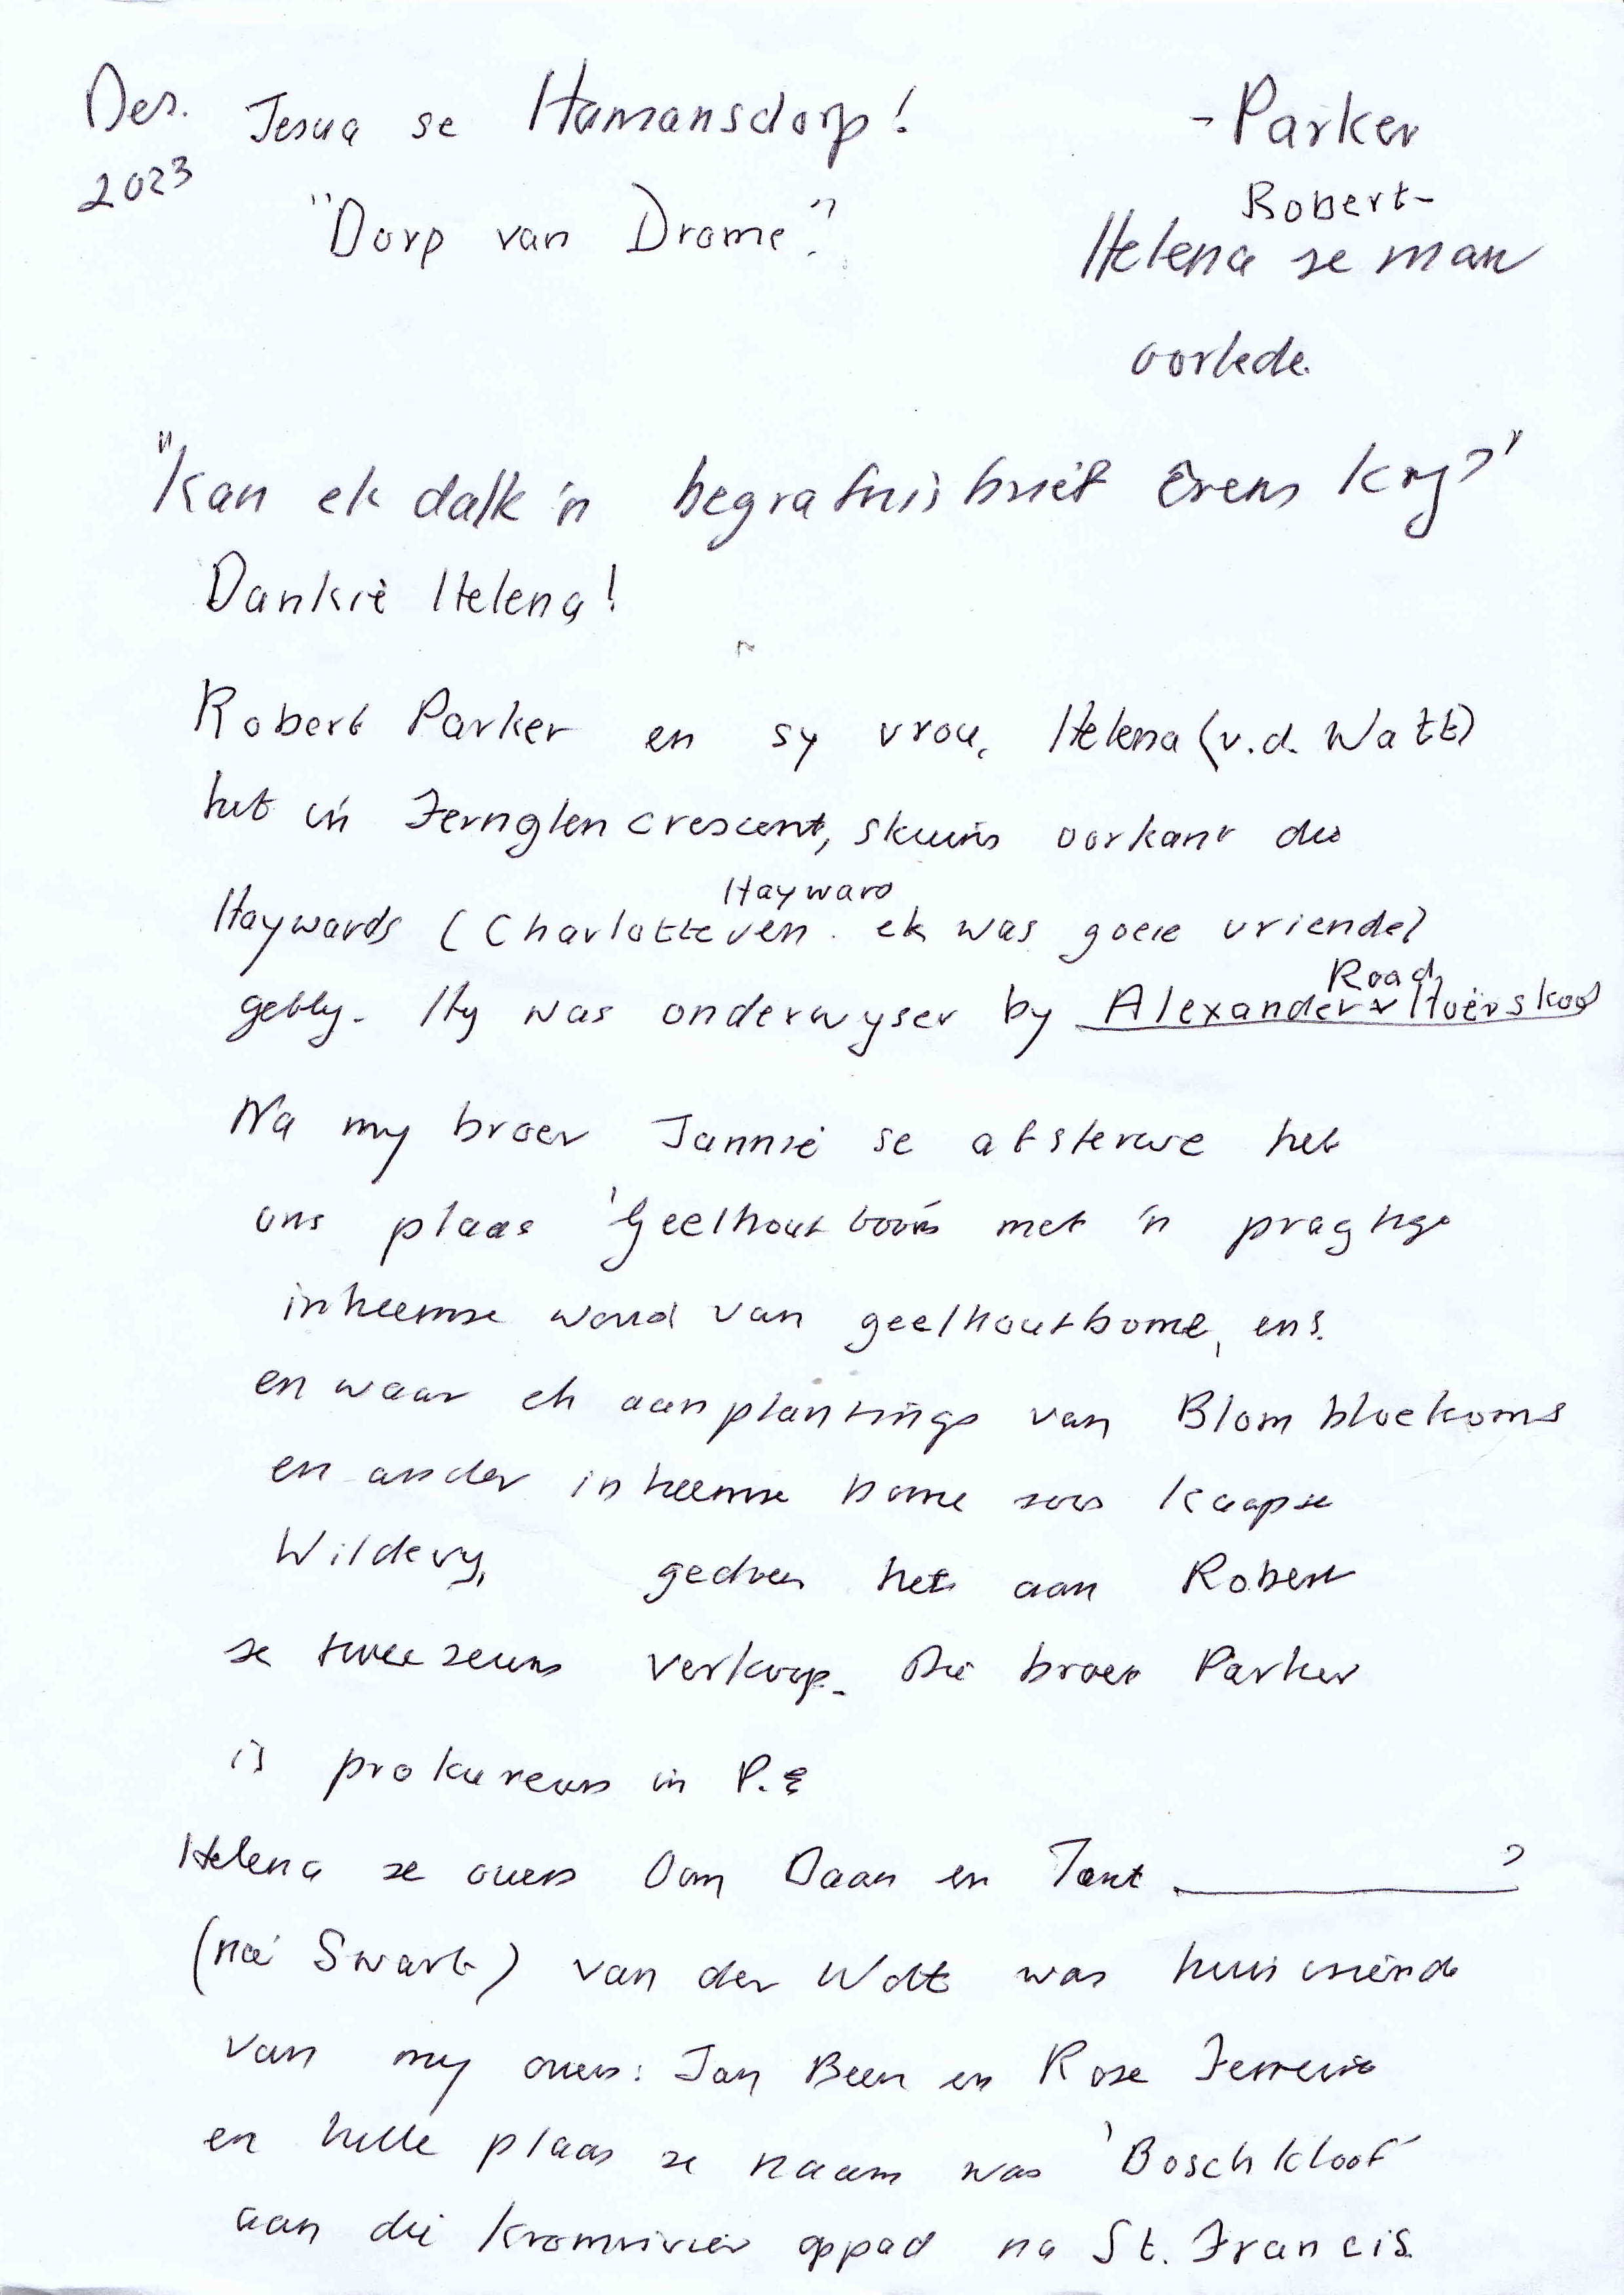 Des. Jesua se Humansdorp!
- Parker
2023
Robert-
"Dorp van Drome".
Helena se man
oorlede.
"Kan ek dalk 'n begrafnisbrief êrens kry?"
Dankie Helena!
Robert Parker en sy vrou, Helena (v.d. Watt)
het in Fernglen Crescent, skuins oorkant die
Hayward
Haywards (Charlotte en ek was goeie vriende)
Road
gebly. Hy was onderwyser by Alexander Hoërskool
Na my broer Jannie se afsterwe het
ons plaas 'Geelhoutboom' met 'n pragtige
inheemse woud van geelhoutbome, ens.
en waar ek aanplantings van Blom bloekoms
en ander inheemse bome soos Kaapse
Wildevy, gedoen het aan Robert
se twee seuns verkoop. Die broer Parker
is prokureur in P.E
Helena se ouers Oom Daan en Tant ________?
(née Swart) van der Watt was huisvriende
van my ouers: Jan Been en Rose Ferreira
en hulle plaas se naam was 'Boschkloof'
aan die Kromrivier oppad na St. Francis.